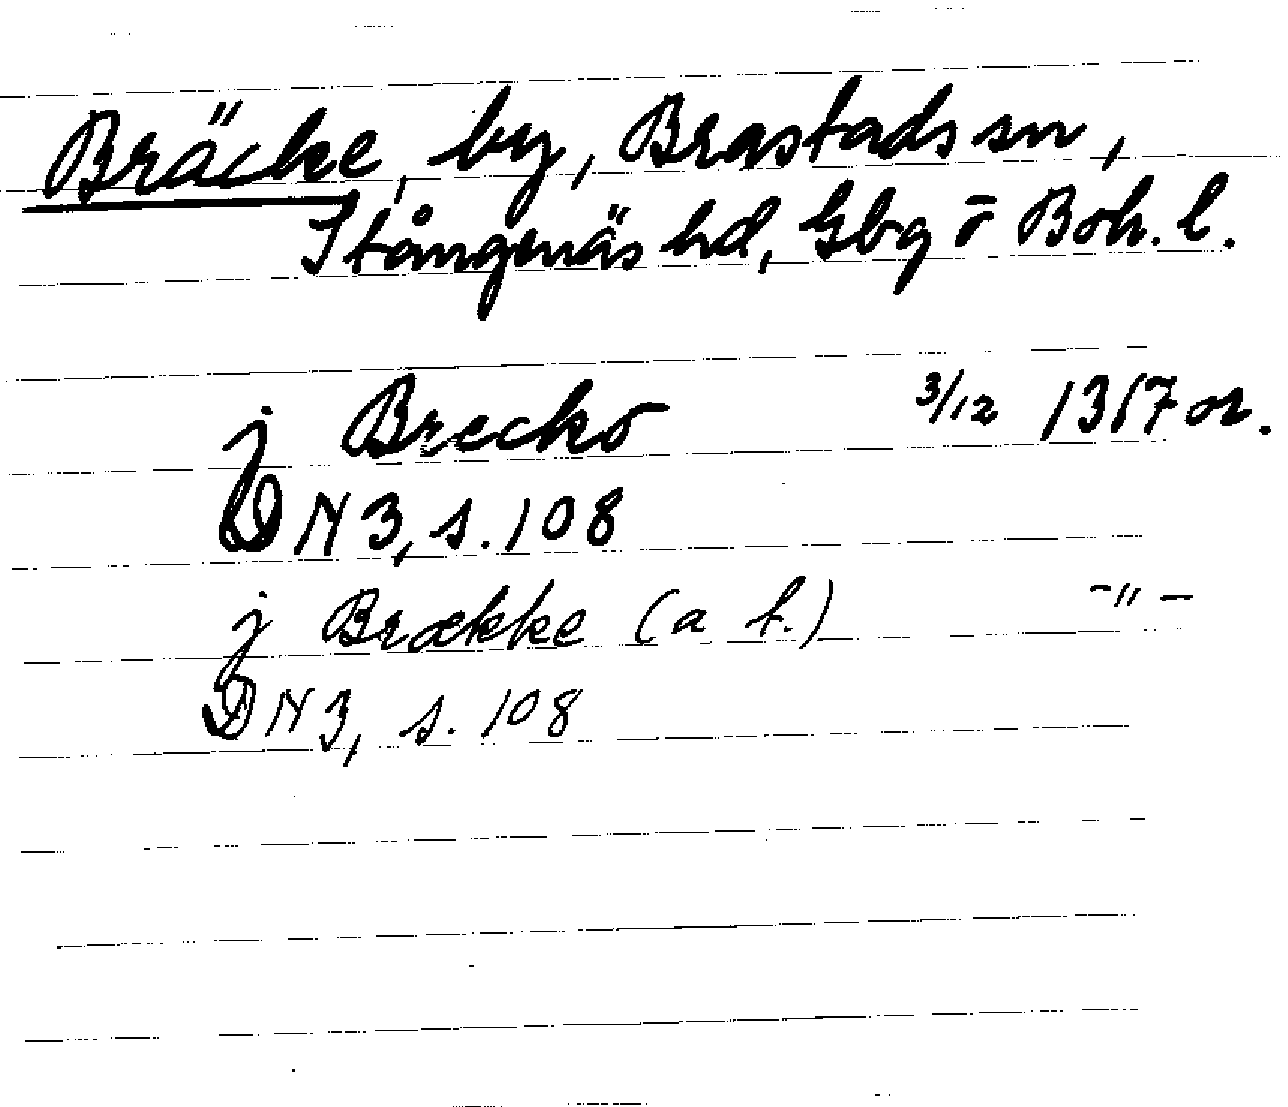 Bräcke, by, Brastads sn,
Stångenäs hd, Gbg o Boh. l.
j Brecko 3/12 1317 or.
DN 3, s. 108
j Brække (a h.) -"-
DN 3, s. 108